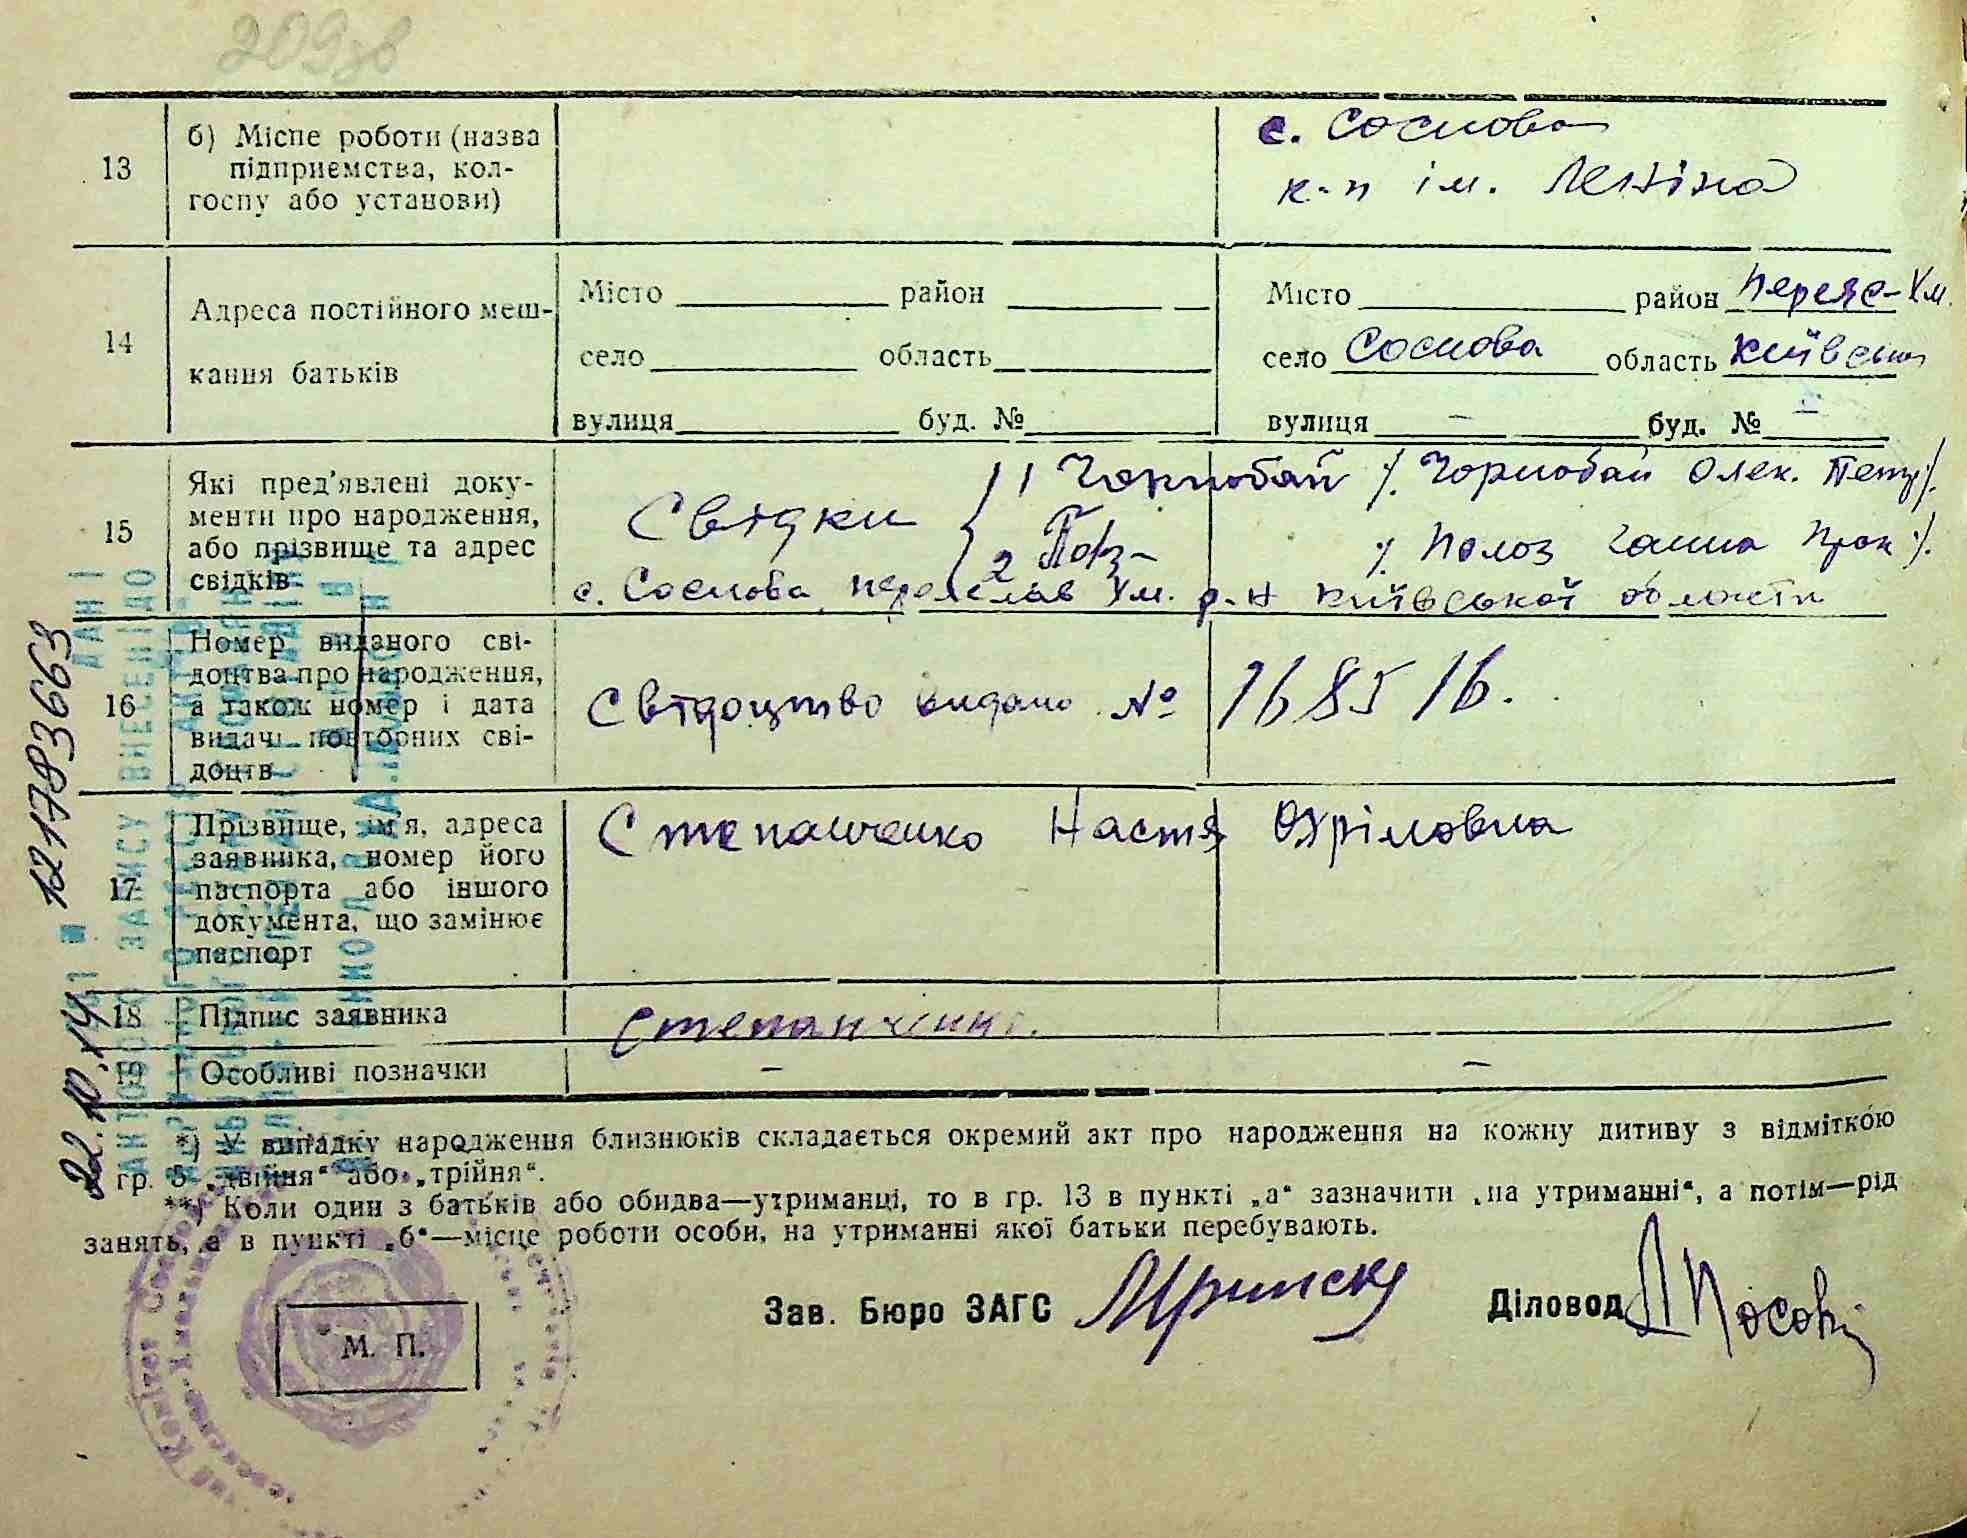 209зв
13
б) Місце роботи (назва
підприємства, кол-
госпу або установи)
с. Соснова
к-п ім. Леніна
14
Адреса постійного меш-
кання батьків
Місто район
село область
вулиця буд. №
Місто район Переяс-Хм.
село Соснова область Київськ
вулиця — буд. № —
15
Які пред'явлені доку-
менти про народження,
або прізвище та адрес
свідків
Свідки { 1) Чорнобай /. Чорнобай Олек. Петр/.
2 Поз- /. Полоз Ганна Прок/.
с. Соснова, переяслав Хм. р-н Київської области
16
Номер виданого сві-
доцтва про народження,
а також номер і дата
видачі повторних сві-
доцтв
Свідоцтво видано № 168516.
17
Прізвище, ім'я, адреса
заявника, номер його
паспорта або іншого
документа, що замінює
паспорт
Степанченко Настя Охрімовна
18
Підпис заявника
Степанченко.
19
Особливі позначки
— —
*) У випадку народження близнюків складається окремий акт про народження на кожну дитиву з відміткою
гр. 5 „двійня“ або „трійня“.
**) Коли один з батьків або обидва—утриманці, то в гр. 13 в пункті „а“ зазначити „на утриманні“, а потім—рід
занять, а в пункті „б“—місце роботи особи, на утриманні якої батьки перебувають.
Зав. Бюро ЗАГС
Діловод
М. П.
22.10.14 № 1217836663
ДАНІ
АКТОВОГО ЗАПИСУ ВНЕСЕНІ ДО